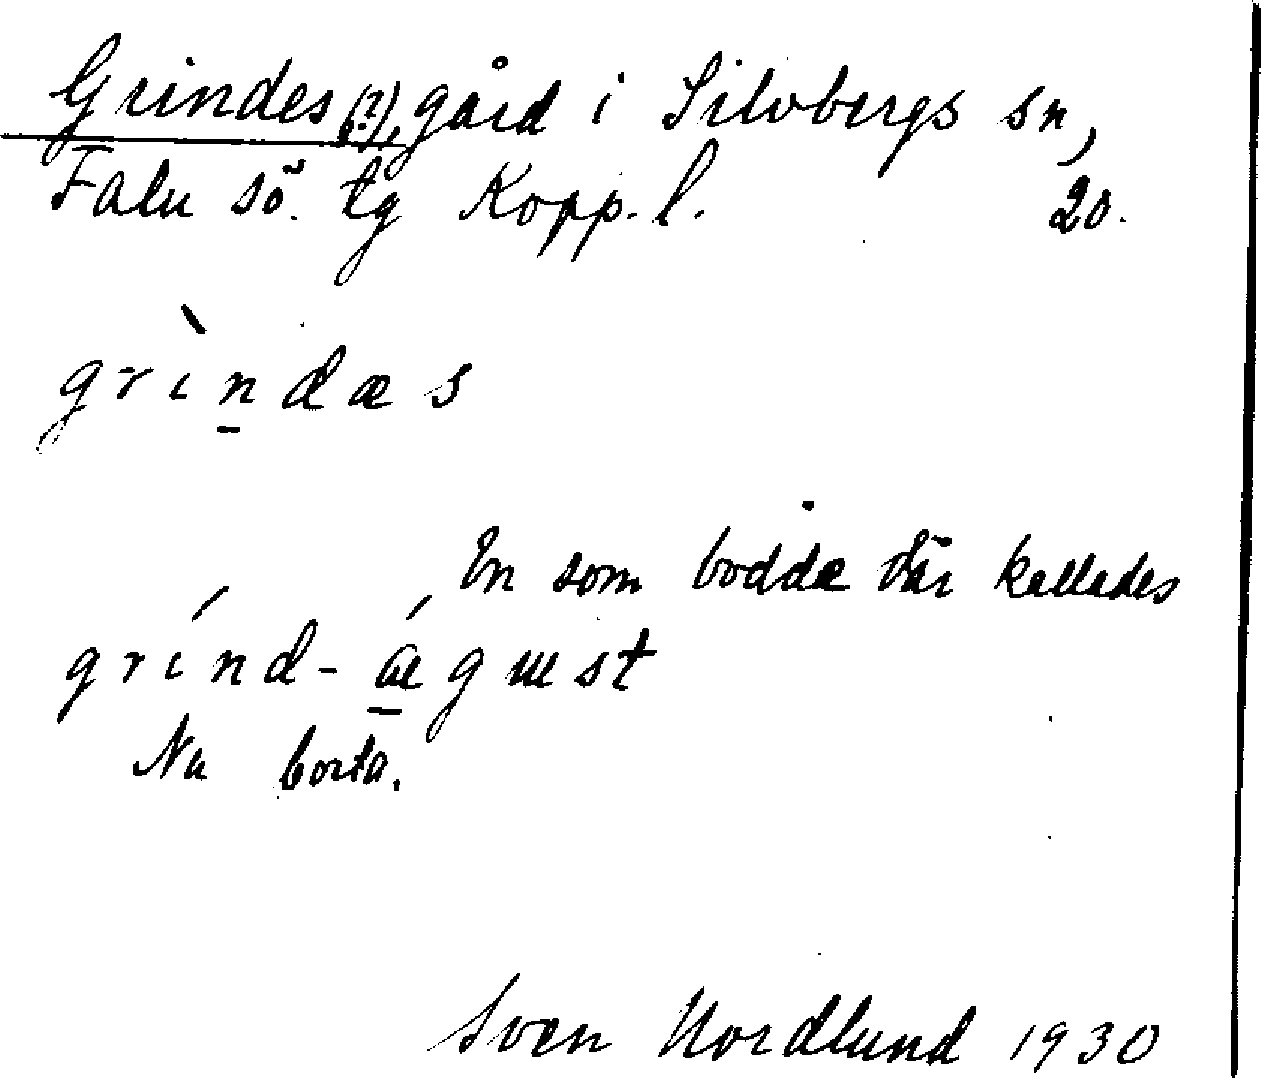 Grindes (?), gård i Silvbergs sn,
Falu sö. tg Kopp. l. 20.
grìndæs
En som bodde där kallades
grínd-ǽgust
Nu borta.
Sven Nordlund 1930